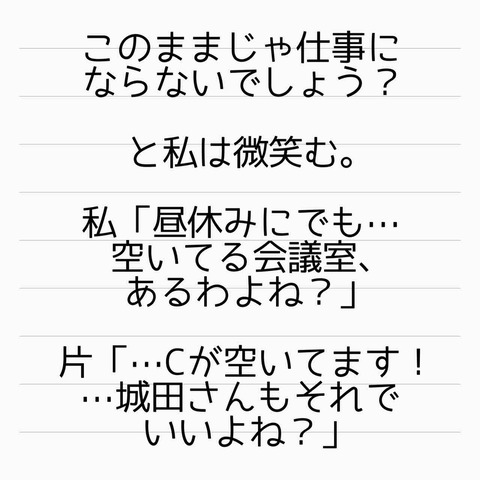 このままじゃ仕事に
ならないでしょう？
と私は微笑む。
私「昼休みにでも…
空いてる会議室、
あるわよね？」
片「…Cが空いてます！
…城田さんもそれで
いいよね？」